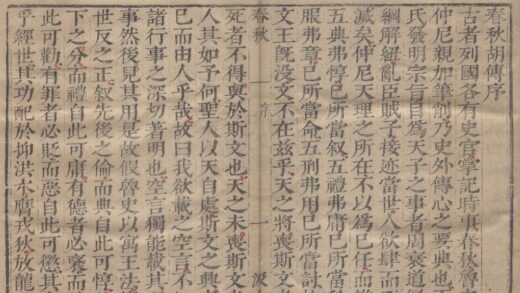 春秋胡傳序
古者列國各有史官掌記時事春秋魯
仲尼親加筆削乃史外傳心之要典也
氏發明宗旨目為天子之事者周衰道微
綱解紐亂臣賊子接迹當世人欲肆而
滅矣仲尼天理之所在不以為已任而
五典弗惇已所當叙五禮弗庸已所當
服弗章已所當命五刑弗用已所當討
文王旣没文不在茲乎天之將喪斯文
春秋 序 一 汲
死者不得與於斯文也天之未喪斯文
人其如予何聖人以天自處斯文之興
已而由人乎哉故曰我欲載之空言不
諸行事之深切著明也空言獨能載其
事然後見其用是故假魯史以寓王法
世反之正叙先後之倫而典自此可惇
下之分而禮自此可庸有德者必褒而
此可勸有罪者必貶而惡自此可懲其
乎經世其功配於抑洪水膺戎狄放龍